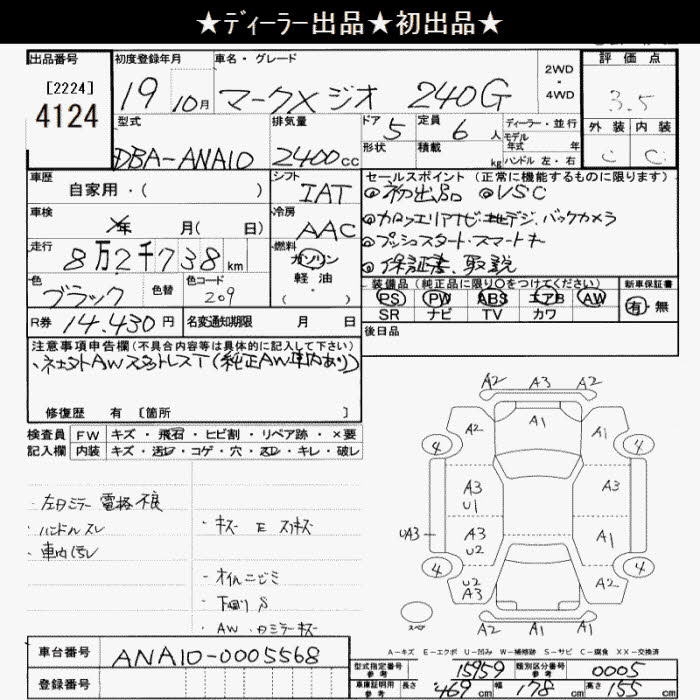 ★ディーラー出品★初出品★
出品番号
[2224]
4124
初度登録年月
19 10月
車名・グレード
マークX ジオ 240G
2WD
・
4WD
評価点
3.5
外装 内装
C C
型式
DBA-ANA10
排気量
2400cc
ドア 5
形状
定員 6 人
積載 kg
ディーラー・並行
モデル
年式 年
ハンドル 左・右
車歴
自家用・( )
シフト
IAT
セールスポイント (正常に機能するものに限ります)
◎初出品 ◎VSC
◎カロッツェリアナビ・地デジ、バックカメラ
◎プッシュスタート・スマートキー
◎保証書、取説
車検
年 月( 日)
冷房
AAC
走行
8万2千738km
燃料
ガソリン
軽油
・( )
色
ブラック
色替
色コード
209
装備品 (純正品に限り○をつけてください)
PS PW ABS エアB AW
SR ナビ TV カワ
新車保証書
有・無
R券 14,430円
名変通知期限 月 日
後日品
注意事項申告欄(不具合内容等は具体的に記入して下さい)
・社外AWスタットレスT(純正AW車内あり)
修復歴 有 〔箇所 〕
検査員
記入欄
FW キズ・飛石・ヒビ割・リペア跡・×要
内装 キズ・汚レ・コゲ・穴・スレ・キレ・破レ
・左Dミラー電格不良
・ハンドルスレ
・車内汚レ
・キズ E スリキズ
・オイルニジミ
・下廻りS
・AW、Dミラーキズ
A2 A3 A2
A2 A1 A1
4 4
A3
U1
A3
UA3 A3
U2
A1
4 4
U2
A3
A2
A1 A1 A2
スペア
A-キズ E-エクボ U-凹み W-補修跡 S-サビ C-腐食 XX-交換済
車台番号 ANA10-0005568
登録番号
型式指定番号
参考
15959
類別区分番号
参考
0005
車庫証明用
参考
長さ 469cm 幅 178cm 高さ 155cm